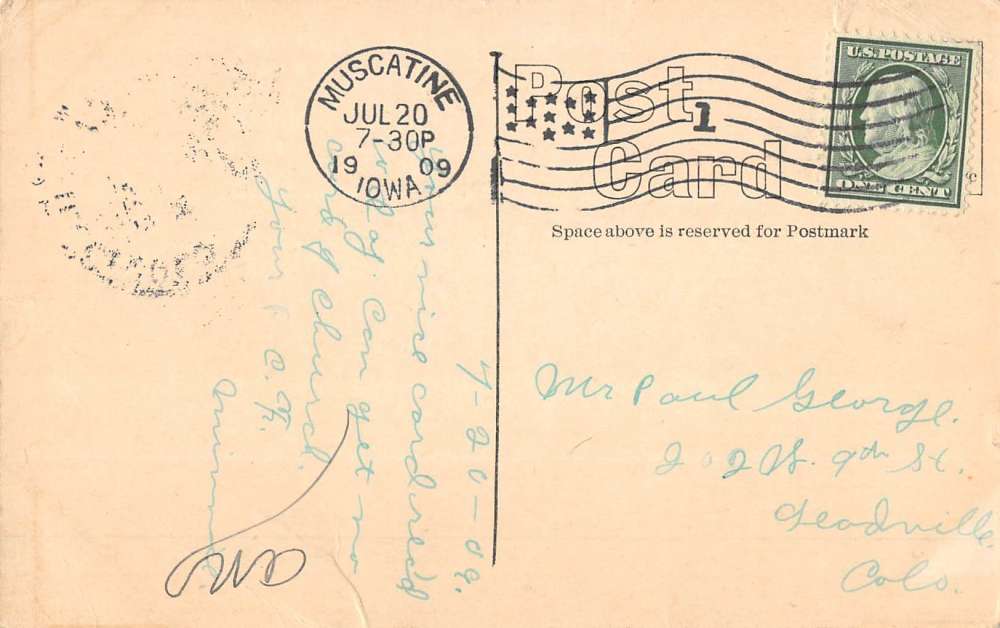 MUSCATINE
JUL 20
7-30P
1909
IOWA
Post
Card
1
U.S. POSTAGE
ONE CENT
Space above is reserved for Postmark
7-20-09.
Your nice card rec'd
Can get no
card of Church.
Your F.C.F.
Minnie
Mr Paul George.
202 W. 9th St.
Leadville
Colo.